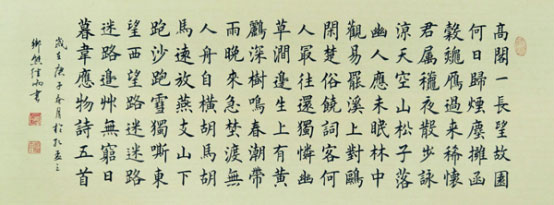 高閣一長望故園
何日歸煙塵擁函
穀龝雁過來稀懷
君屬龝夜散步詠
涼天空山松子落
幽人應未眠林中
觀易罷溪上對鷗
閑楚俗饒詞客何
人最往還獨憐幽
草澗邊生上有黃
鸝深樹鳴春潮帶
雨晚來急埜渡無
人舟自橫胡馬胡
馬遠放燕支山下
跑沙跑雪獨嘶東
望西望路迷迷路
迷路邊艸無窮日
暮韋應物詩五首
歲在庚子春月於
鄉熊 書